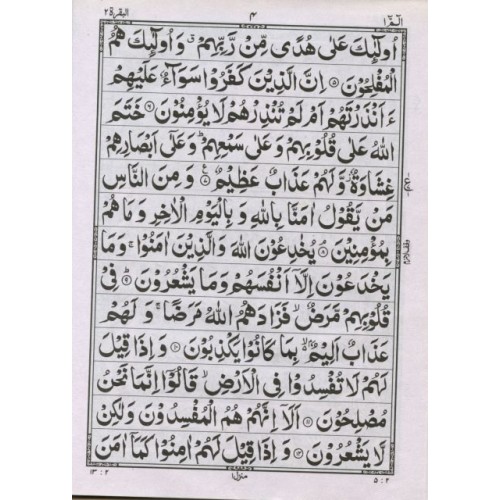 الٓمّٓ ١ ٤ البقرة ٢
اُولٰٓئِكَ عَلٰى هُدًى مِّنْ رَّبِّهِمْ ۗ وَ اُولٰٓئِكَ هُمُ
الْمُفْلِحُوْنَ ۝٥ اِنَّ الَّذِيْنَ كَفَرُوْا سَوَآءٌ عَلَيْهِمْ
ءَاَنْذَرْتَهُمْ اَمْ لَمْ تُنْذِرْهُمْ لَا يُؤْمِنُوْنَ ۝٦ خَتَمَ
اللّٰهُ عَلٰى قُلُوْبِهِمْ وَعَلٰى سَمْعِهِمْ ؕ وَعَلٰٓى اَبْصَارِهِمْ
غِشَاوَةٌ ؗ وَّلَهُمْ عَذَابٌ عَظِيْمٌ ۝٧ وَ مِنَ النَّاسِ
مَنْ يَّقُوْلُ اٰمَنَّا بِاللّٰهِ وَ بِالْيَوْمِ الْاٰخِرِ وَ مَا هُمْ
بِمُؤْمِنِيْنَ ۝٨ يُخٰدِعُوْنَ اللّٰهَ وَ الَّذِيْنَ اٰمَنُوْا ۚ وَمَا
يَخْدَعُوْنَ اِلَّآ اَنْفُسَهُمْ وَمَا يَشْعُرُوْنَ ۝٩ فِيْ
قُلُوْبِهِمْ مَّرَضٌ ۙ فَزَادَهُمُ اللّٰهُ مَرَضًا ۚ وَ لَهُمْ
عَذَابٌ اَلِيْمٌۢ ۙ بِمَا كَانُوْا يَكْذِبُوْنَ ۝١٠ وَ اِذَا قِيْلَ
لَهُمْ لَا تُفْسِدُوْا فِي الْاَرْضِ ۙ قَالُوْٓا اِنَّمَا نَحْنُ
مُصْلِحُوْنَ ۝١١ اَلَآ اِنَّهُمْ هُمُ الْمُفْسِدُوْنَ وَلٰكِنْ
لَّا يَشْعُرُوْنَ ۝١٢ وَ اِذَا قِيْلَ لَهُمْ اٰمِنُوْا كَمَآ اٰمَنَ
٢ : ٥ منزل ١ ٢ : ١٣